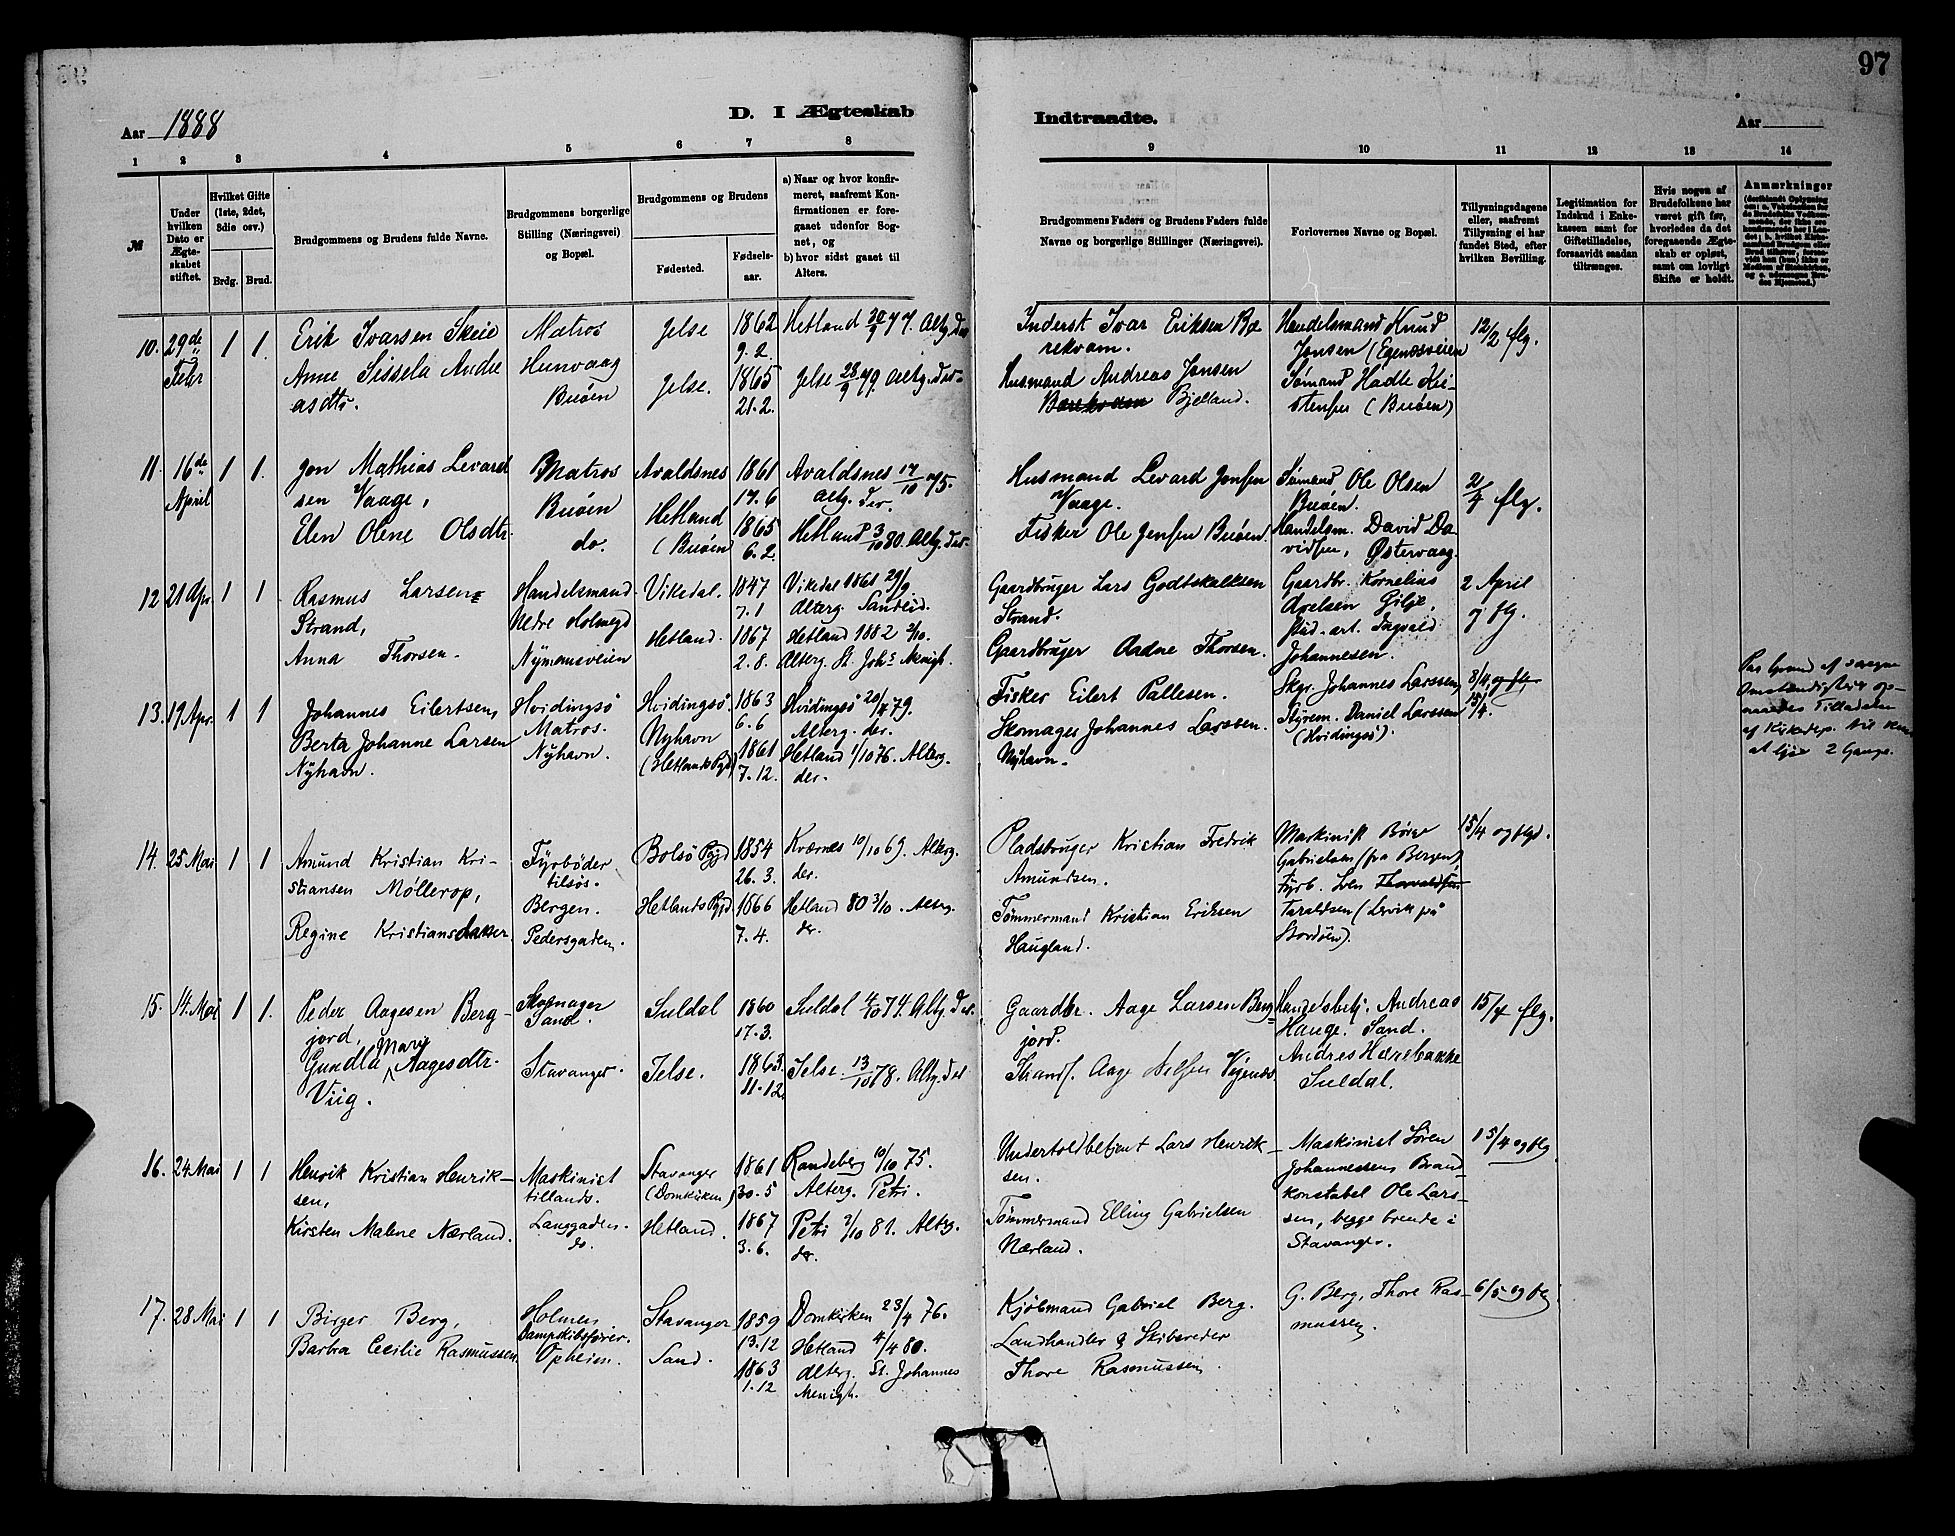 97
Aar 1888
D. I Ægteskab
Indtraadte.
Aar
1 2 3 4 5 6 7 8 9 10 11 12 13 14
№
Under hvilken Dato er Ægteskabet stiftet.
Hvilket Gifte (1ste, 2det, 3die osv.)
Brdg. Brud.
Brudgommens og Brudens fulde Navne.
Brudgommens borgerlige Stilling (Næringsvei) og Bopæl.
Brudgommens og Brudens
Fødested.
Fødselsaar.
a) Naar og hvor konfirmeret, saafremt Konfirmationen er foregaaet udenfor Sognet, og
b) hvor sidst gaaet til Alters.
Brudgommens Faders og Brudens Faders fulde Navne og borgerlige Stillinger (Næringsvei).
Forlovernes Navne og Bopæl.
Tillysningsdagene eller, saafremt Tillysning ei har fundet Sted, efter hvilken Bevilling.
Legitimation for Indskud i Enkekassen samt for Giftetilladelse, forsaavidt saadan tiltrænges.
Hvis nogen af Brudefolkene har været gift før, hvorledes da det foregaaende Ægteskab er opløst, samt om lovligt Skifte er holdt.
Anmærkninger
10. 29de Febr 1 1.
Erik Ivarsen Skeie
Anne Sissela Andreasdtr.
Matros
Hunvaag
Buøen
Jelse 1862 9.2.
Jelse. 1865 21.2.
Hetland 30/9 77. Altg. der
Jelse 28/9 79. Altg. der.
Inderst Ivar Eriksen Barekvam.
Husmand Andreas Jonsen
Barekvam Bjelland.
Handelsmand Knud
Jonsen (Egenesveien
Sømand Hadle Kristensen (Buøen)
12/2 flg.
11. 16de April 1 1.
Jon Mathias Levardsen Vaage,
Elen Olene Olsdtr.
Matros
Buøen
do.
Avaldsnes 1861 17.6
Hetland (Buøen 1865 6.2.
Avaldsnes 17/10 75.
Altg. der.
Hetland 3/10 80. Altg. der
Husmand Levard Jonsen
Vaage.
Fisker Ole Jensen Buøen.
Sømand Ole Olsen
Buøen.
Handelsm. David Davidsen, Østervaag.
2/4 flg.
12 21 Apr. 1 1
Rasmus Larsen
Strand,
Anna Thorsen.
Handelsmand
Nedre Holmegd
Nymansveien
Vikedal. 1847 7.1
Hetland. 1867 2.8.
Vikedal 1861 29/9
Alterg. Sandeid.
Hetland 1882 2/10.
Alterg. St. Johs Menigh.
Gaardbruger Lars Godtskalksen
Strand.
Gaardbruger Aadne Thorsen.
Gaardbr. Kornelius
Axelsen Gilje,
stud. art. Ingvald
Johannesen.
2 April
og flg.
13. 19 Apr. 1 1
Johannes Eilertsen,
Berta Johanne Larsen
Nyhavn.
Hvidingsø
Matros.
Nyhavn.
Hvidingsø. 1863 6.6
Nyhavn (Hetlands Pgd) 1861 7.12.
Hvidingsø 20/4 79.
Alterg. der.
Hetland 1/10 76. Alterg.
der.
Fisker Eilert Pallesen.
Skomager Johannes Larssen.
Nyhavn.
Skgr. Johannes Larssen,
Styrem. Daniel Larssen
(Hvidingsø).
8/4, og flg,
15/4.
Paa Grund af særegne
Omstændigheder
Tilladelse
at lyse 2 Gange.
14. 25 Mai 1 1
Amund Kristian Kristiansen Møllerop,
Regine Kristiansdatter.
Fyrbøder
tilsøs.
Bergen.
Pedersgaden.
Bolsø Pgjd 1854 26.3.
Hetlands Pgjd 1866 7.4.
Kværnes 10/10 69. Alterg.
der.
Hetland 80 3/10. Alterg.
der.
Pladsbruger Kristian Fredrik
Amundsen.
Tømmermand Kristian Eriksen
Haugland.
Maskinist Børge
Gabrielsen (fra Bergen)
Fyrb. Sven Thorvaldsen
Taraldsen (Lervik på
Stordøen).
15/4 og flgd.
15. 14. Mai 1 1.
Peder Aagesen Bergjord,
Gundla Marie Aagesdtr.
Viig.
Skomager
Sand.
Stavanger.
Suldal 1860 17.3.
Jelse. 1863 11.12.
Suldal 4/10 74. Altg. der.
Jelse. 13/10 78. Altg. der
Gaardbr. Aage Larsen Bergjord.
Strands. Aage Nelsen Vigenes.
Handelsbetj. Andreas
Hauge. Sand.
Andres Hærebakke
Suldal.
15/4 flg.
16. 24 Mai 1 1
Henrik Kristian Henriksen,
Kirsten Malene Nærland.
Maskinist
tillands.
Langgaden.
do.
Stavanger (Domkirken) 1861 30.5
Hetland. 1867 3.6.
Randeberg 10/10 75.
Alterg. Petri.
Petri 2/10 81. Alterg.
der.
Undertoldbetjent Lars Henriksen.
Tømmermand Elling Gabrielsen
Nærland.
Maskinist Søren
Johannessen, Brandkonstabel Ole Larssen, begge boende i
Stavanger.
15/4 og flg
17. 28 Mai 1 1
Birger Berg,
Barba Cecilie Rasmussen.
Holmen
Dampskibsfører.
Opheim.
Stavanger 1859 13.12
Sand. 1863 1.12
Domkirken 23/4 76.
Hetland 4/4 80.
Alterg. St. Johannes
Menigh.
Kjøbmand Gabriel Berg.
Landhandler & Skibsreder
Thore Rasmussen.
G. Berg, Thore Rasmussen.
6/5 og flg